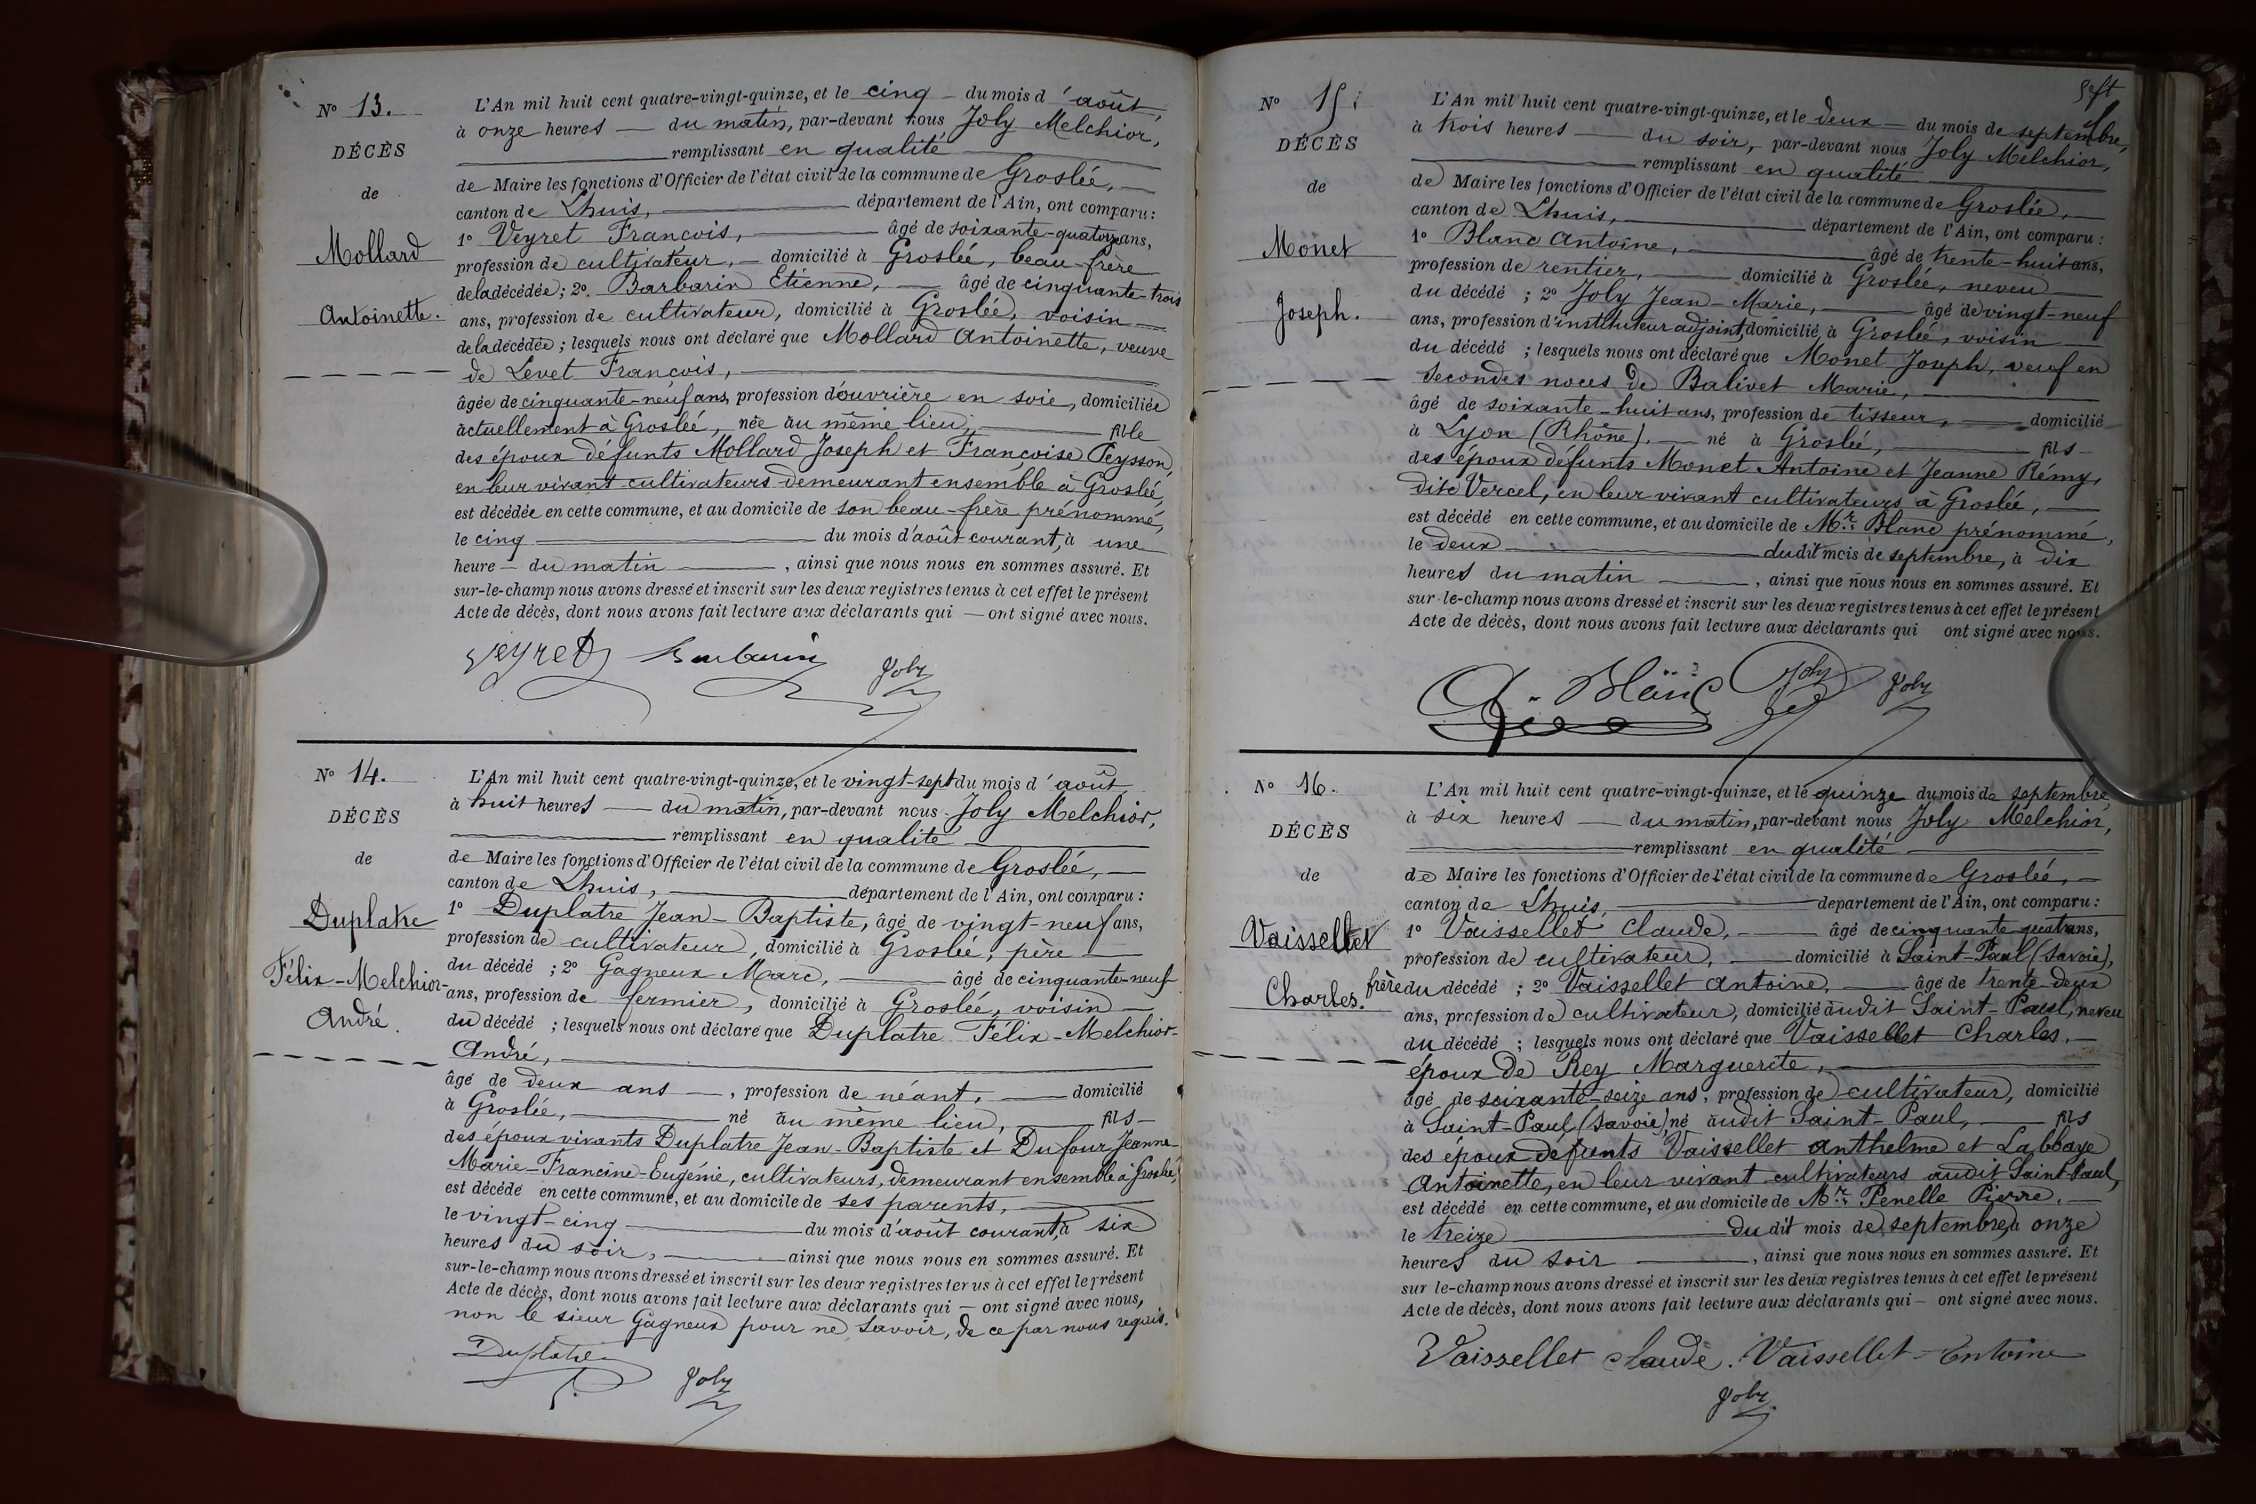 N° 13.
DÉCÈS
de
Mollard
Antoinette.
L'An mil huit cent quatre-vingt-quinze, et le cinq du mois d'août,
à onze heures du matin, par-devant nous Joly Melchior,
remplissant en qualité
de Maire les fonctions d'Officier de l'état civil de la commune de Groslée,
canton de Lhuis, département de l'Ain, ont comparu :
1° Veyret François, âgé de soixante-quatorze ans,
profession de cultivateur, domicilié à Groslée, beau-frère
de la décédée ; 2° Barbarin Etienne, âgé de cinquante-trois
ans, profession de cultivateur, domicilié à Groslée, voisin
de la décédée ; lesquels nous ont déclaré que Mollard Antoinette, veuve
de Levet François,
âgée de cinquante-neuf ans, profession d'ouvrière en soie, domiciliée
actuellement à Groslée, née au même lieu, fille
des époux défunts Mollard Joseph et Françoise Peysson,
en leur vivant cultivateurs demeurant ensemble à Groslée,
est décédée en cette commune, et au domicile de son beau-frère prénommé,
le cinq du mois d'août courant, à une
heure du matin, ainsi que nous nous en sommes assuré. Et
sur-le-champ nous avons dressé et inscrit sur les deux registres tenus à cet effet le présent
Acte de décès, dont nous avons fait lecture aux déclarants qui — ont signé avec nous.
Veyret Barbarin Joly
N° 14.
DÉCÈS
de
Duplatre
Félix-Melchior-
André.
L'An mil huit cent quatre-vingt-quinze, et le vingt-sept du mois d'août
à huit heures du matin, par-devant nous Joly Melchior,
remplissant en qualité
de Maire les fonctions d'Officier de l'état civil de la commune de Groslée,
canton de Lhuis, département de l'Ain, ont comparu :
1° Duplatre Jean-Baptiste, âgé de vingt-neuf ans,
profession de cultivateur, domicilié à Groslée, père
du décédé ; 2° Gagneux Marc, âgé de cinquante-neuf
ans, profession de fermier, domicilié à Groslée, voisin
du décédé ; lesquels nous ont déclaré que Duplatre Félix-Melchior-
André,
âgé de deux ans, profession de néant, domicilié
à Groslée, né au même lieu, fils
des époux vivants Duplatre Jean-Baptiste et Dufour Jeanne-
Marie-Francine-Eugénie, cultivateurs, demeurant ensemble à Groslée,
est décédé en cette commune, et au domicile de ses parents,
le vingt-cinq du mois d'août courant, à six
heures du soir, ainsi que nous nous en sommes assuré. Et
sur-le-champ nous avons dressé et inscrit sur les deux registres tenus à cet effet le présent
Acte de décès, dont nous avons fait lecture aux déclarants qui — ont signé avec nous,
non le sieur Gagneux pour ne savoir, de ce par nous requis.
Duplatre Joly
Sept
N° 15.
DÉCÈS
de
Monet
Joseph.
L'An mil huit cent quatre-vingt-quinze, et le deux du mois de septembre,
à trois heures du soir, par-devant nous Joly Melchior,
remplissant en qualité
de Maire les fonctions d'Officier de l'état civil de la commune de Groslée,
canton de Lhuis, département de l'Ain, ont comparu :
1° Blanc Antoine, âgé de trente-huit ans,
profession de rentier, domicilié à Groslée, neveu
du décédé ; 2° Joly Jean-Marie, âgé de vingt-neuf
ans, profession d'instituteur adjoint, domicilié à Groslée, voisin
du décédé ; lesquels nous ont déclaré que Monet Joseph, veuf en
secondes noces de Balivet Marie,
âgé de soixante-huit ans, profession de tisseur, domicilié
à Lyon (Rhône), né à Groslée, fils
des époux défunts Monet Antoine et Jeanne Rémy,
dite Vercel, en leur vivant cultivateurs à Groslée,
est décédé en cette commune, et au domicile de Mr. Blanc prénommé,
le deux dudit mois de septembre, à dix
heures du matin, ainsi que nous nous en sommes assuré. Et
sur-le-champ nous avons dressé et inscrit sur les deux registres tenus à cet effet le présent
Acte de décès, dont nous avons fait lecture aux déclarants qui ont signé avec nous.
A. Blanc Joly Joly
N° 16.
DÉCÈS
de
Vaissellet
Charles.
L'An mil huit cent quatre-vingt-quinze, et le quinze du mois de septembre
à six heures du matin, par-devant nous Joly Melchior,
remplissant en qualité
de Maire les fonctions d'Officier de l'état civil de la commune de Groslée,
canton de Lhuis, département de l'Ain, ont comparu :
1° Vaissellet Claude, âgé de cinquante quatre ans,
profession de cultivateur, domicilié à Saint-Paul (Savoie),
frère du décédé ; 2° Vaissellet Antoine, âgé de trente-deux
ans, profession de cultivateur, domicilié audit Saint-Paul, neveu
du décédé ; lesquels nous ont déclaré que Vaissellet Charles,
époux de Rey Marguerite,
âgé de soixante-seize ans, profession de cultivateur, domicilié
à Saint-Paul (Savoie), né audit Saint-Paul, fils
des époux défunts Vaissellet Anthelme et Labbaye
Antoinette, en leur vivant cultivateurs audit Saint-Paul,
est décédé en cette commune, et au domicile de Mr. Penelle Pierre,
le treize dudit mois de septembre, à onze
heures du soir, ainsi que nous nous en sommes assuré. Et
sur le-champ nous avons dressé et inscrit sur les deux registres tenus à cet effet le présent
Acte de décès, dont nous avons fait lecture aux déclarants qui — ont signé avec nous.
Vaissellet Claude. Vaissellet Antoine
Joly